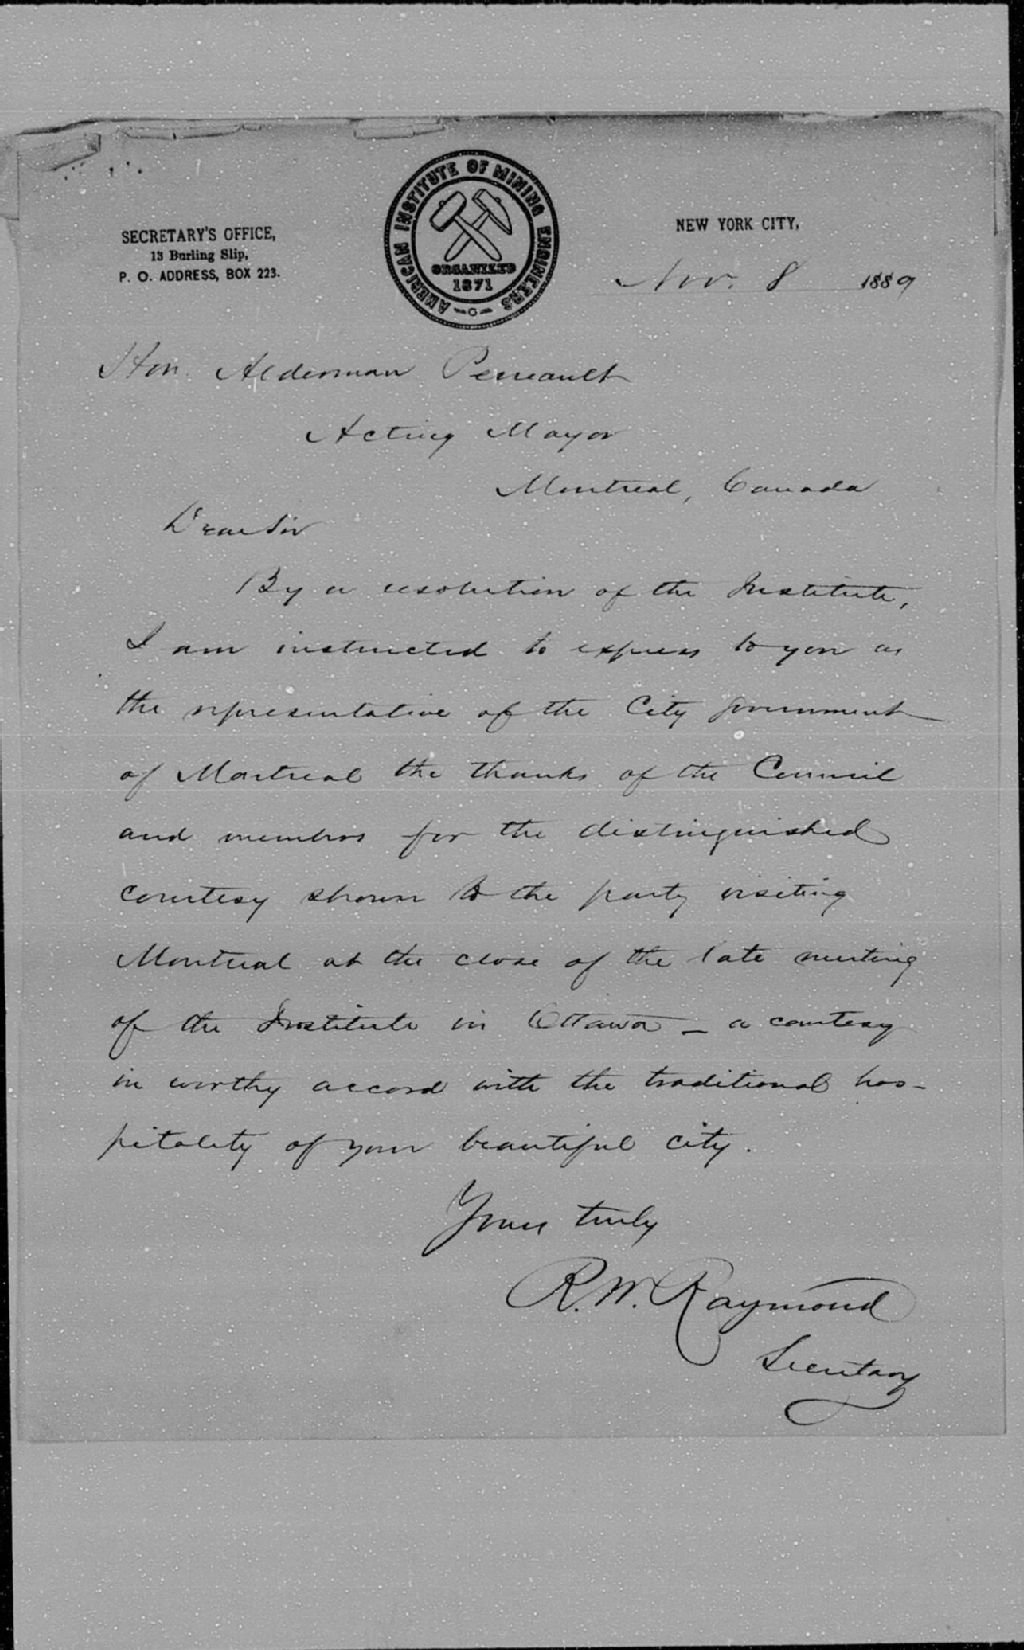 SECRETARY'S OFFICE,
13 Burling Slip,
P. O. ADDRESS, BOX 223.
AMERICAN INSTITUTE OF MINING ENGINEERS
ORGANIZED
1871
NEW YORK CITY,
Nov. 8 1889
Hon. Alderman Perreault
Acting Mayor
Montreal, Canada
Dear Sir
By a resolution of the Institute,
I am instructed to express to you as
the representative of the City government
of Montreal the thanks of the Council
and members for the distinguished
courtesy shown to the party visiting
Montreal at the close of the late meeting
of the Institute in Ottawa – a courtesy
in worthy accord with the traditional hos-
pitality of your beautiful city.
Yours truly
R. W. Raymond
Secretary